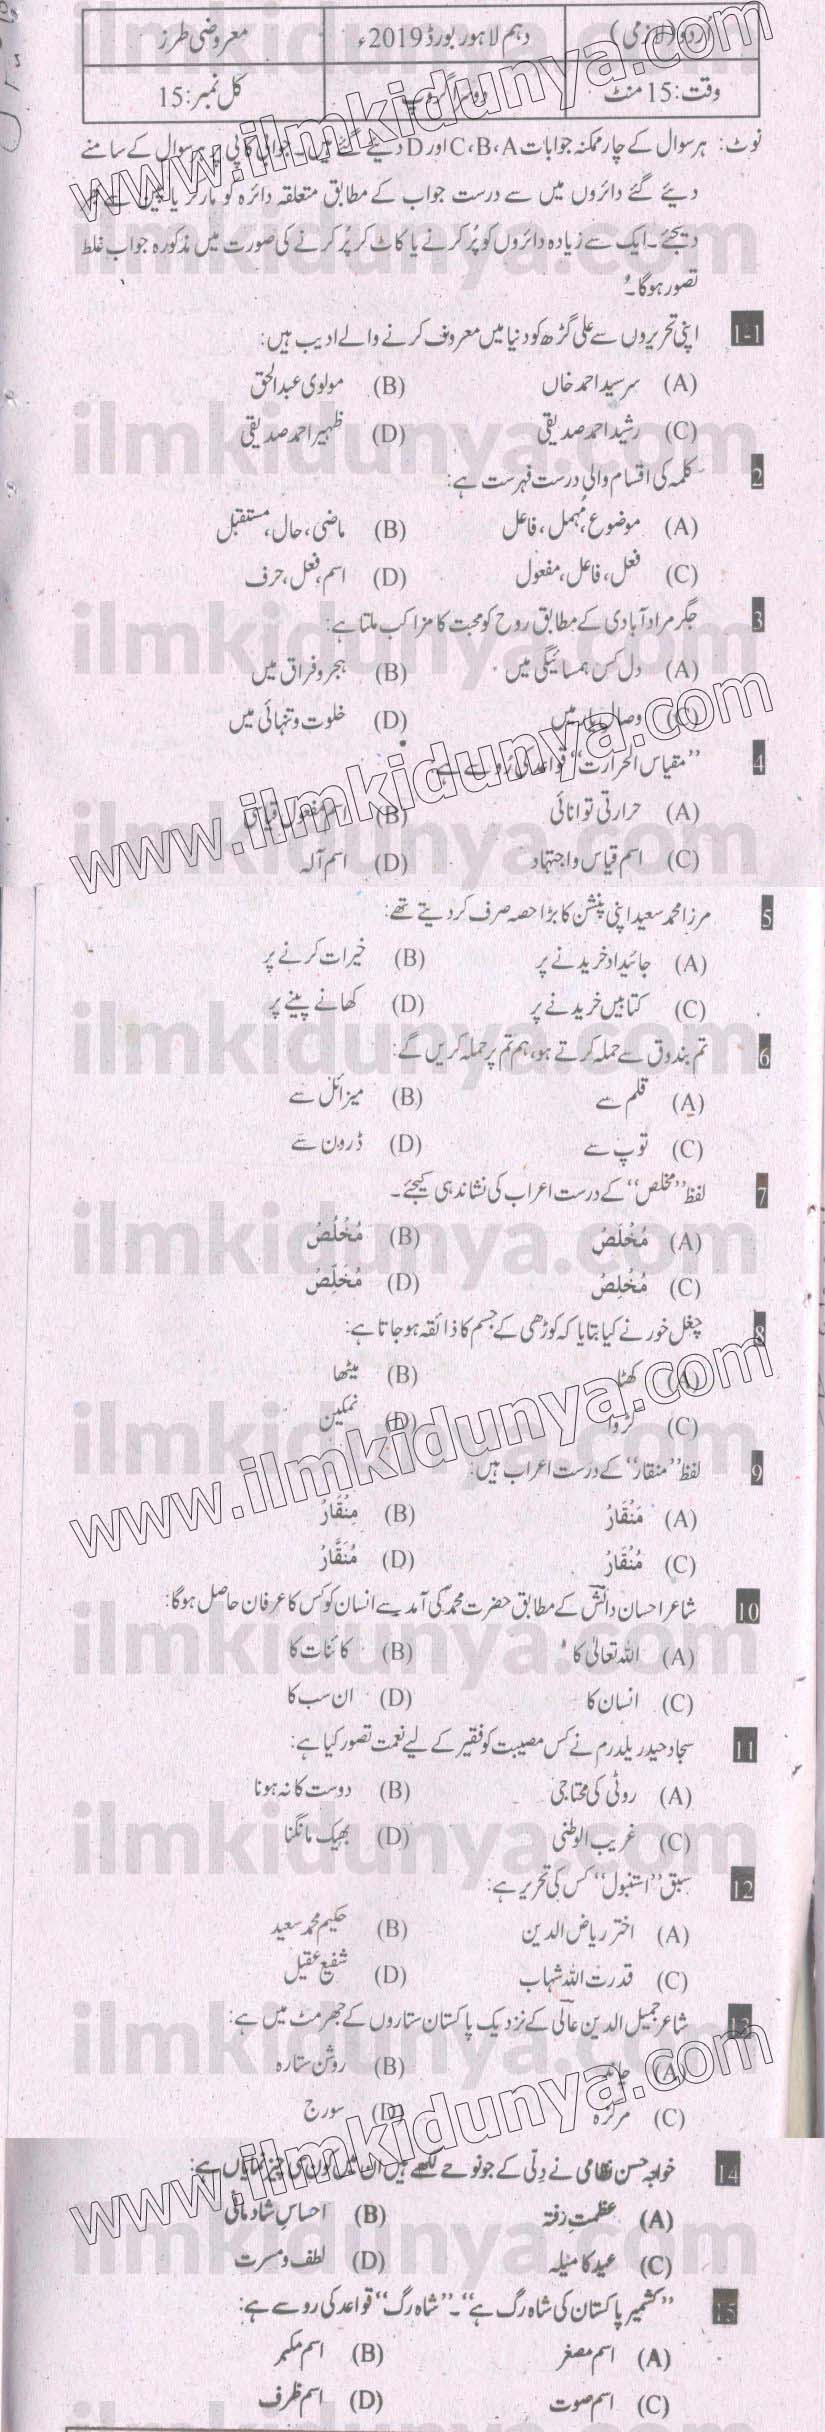 اُردو (لازمی) دہم لاہور بورڈ 2019ء معروضی طرز
وقت: 15 منٹ دوسرا گروپ کل نمبر: 15
نوٹ: ہر سوال کے چار ممکنہ جوابات C،B،A اور D دیئے گئے ہیں۔ جوابی کاپی پر ہر سوال کے سامنے
دیئے گئے دائروں میں سے درست جواب کے مطابق متعلقہ دائرہ کو مارکر یا پین سے بھر
دیجئے۔ ایک سے زیادہ دائروں کو پُر کرنے یا کاٹ کر پُر کرنے کی صورت میں مذکورہ جواب غلط
تصور ہوگا۔
1-1 اپنی تحریروں سے علی گڑھ کو دنیا میں معروف کرنے والے ادیب ہیں:
(A) سرسید احمد خاں (B) مولوی عبدالحق
(C) رشید احمد صدیقی (D) ظہیر احمد صدیقی
2 کلمہ کی اقسام والی درست فہرست ہے:
(A) موضوع، مُہمل، فاعل (B) ماضی، حال، مستقبل
(C) فعل، فاعل، مفعول (D) اسم، فعل، حرف
3 جگر مراد آبادی کے مطابق روح کو محبت کا مزا کب ملتا ہے:
(A) دل کس ہمسائیگی میں (B) ہجر و فراق میں
(C) وصالِ یار میں (D) خلوت و تنہائی میں
4 ”مقیاس الحرارت“ قواعد کی رُو سے ہے:
(A) حرارتی توانائی (B) اسم مفعول قیاسی
(C) اسم قیاس واجتہاد (D) اسم آلہ
5 مرزا محمد سعید اپنی پنشن کا بڑا حصہ صرف کر دیتے تھے:
(A) جائیداد خریدنے پر (B) خیرات کرنے پر
(C) کتابیں خریدنے پر (D) کھانے پینے پر
6 تم بندوق سے حملہ کرتے ہو، ہم تم پر حملہ کریں گے:
(A) قلم سے (B) میزائل سے
(C) توپ سے (D) ڈرون سے
7 لفظ ”مخلص“ کے درست اعراب کی نشاندہی کیجئے۔
(A) مُخْلَصْ (B) مُخْلُصْ
(C) مُخْلِصْ (D) مُخَلِّصْ
8 چغل خور نے کیا بتایا کہ کوڑھی کے جسم کا ذائقہ ہو جاتا ہے:
(A) کھٹا (B) میٹھا
(C) کڑوا (D) نمکین
9 لفظ ”منقار“ کے درست اعراب ہیں:
(A) مَنْقَارْ (B) مِنْقَارْ
(C) مُنْقَارْ (D) مُنَقَّارْ
10 شاعر احسان دانش کے مطابق حضرت محمدؐ کی آمد سے انسان کو کس کا عرفان حاصل ہوگا:
(A) اللہ تعالیٰ کا (B) کائنات کا
(C) انسان کا (D) ان سب کا
11 سجاد حیدر یلدرم نے کس مصیبت کو فقیر کے لیے نعمت تصور کیا ہے:
(A) روٹی کی محتاجی (B) دوست کا نہ ہونا
(C) غریب الوطنی (D) بھیک مانگنا
12 سبق ”استنبول“ کس کی تحریر ہے:
(A) اختر ریاض الدین (B) حکیم محمد سعید
(C) قدرت اللہ شہاب (D) شفیع عقیل
13 شاعر جمیل الدین عالی کے نزدیک پاکستان ستاروں کے جھرمٹ میں ہے:
(A) چاند (B) روشن ستارہ
(C) مرکزہ (D) سورج
14 خواجہ حسن نظامی نے دِلّی کے جو نوحے لکھے ہیں ان میں کون سی چیز نمایاں ہے:
(A) عظمتِ رفتہ (B) احساسِ شادمانی
(C) عید کا میلہ (D) لطف و مسرت
15 ”کشمیر پاکستان کی شاہ رگ ہے“۔ ”شاہ رگ“ قواعد کی رو سے ہے:
(A) اسم مصغر (B) اسم مکبر
(C) اسم صوت (D) اسم ظرف
www.ilmkidunya.com
www.ilmkidunya.com
www.ilmkidunya.com
www.ilmkidunya.com